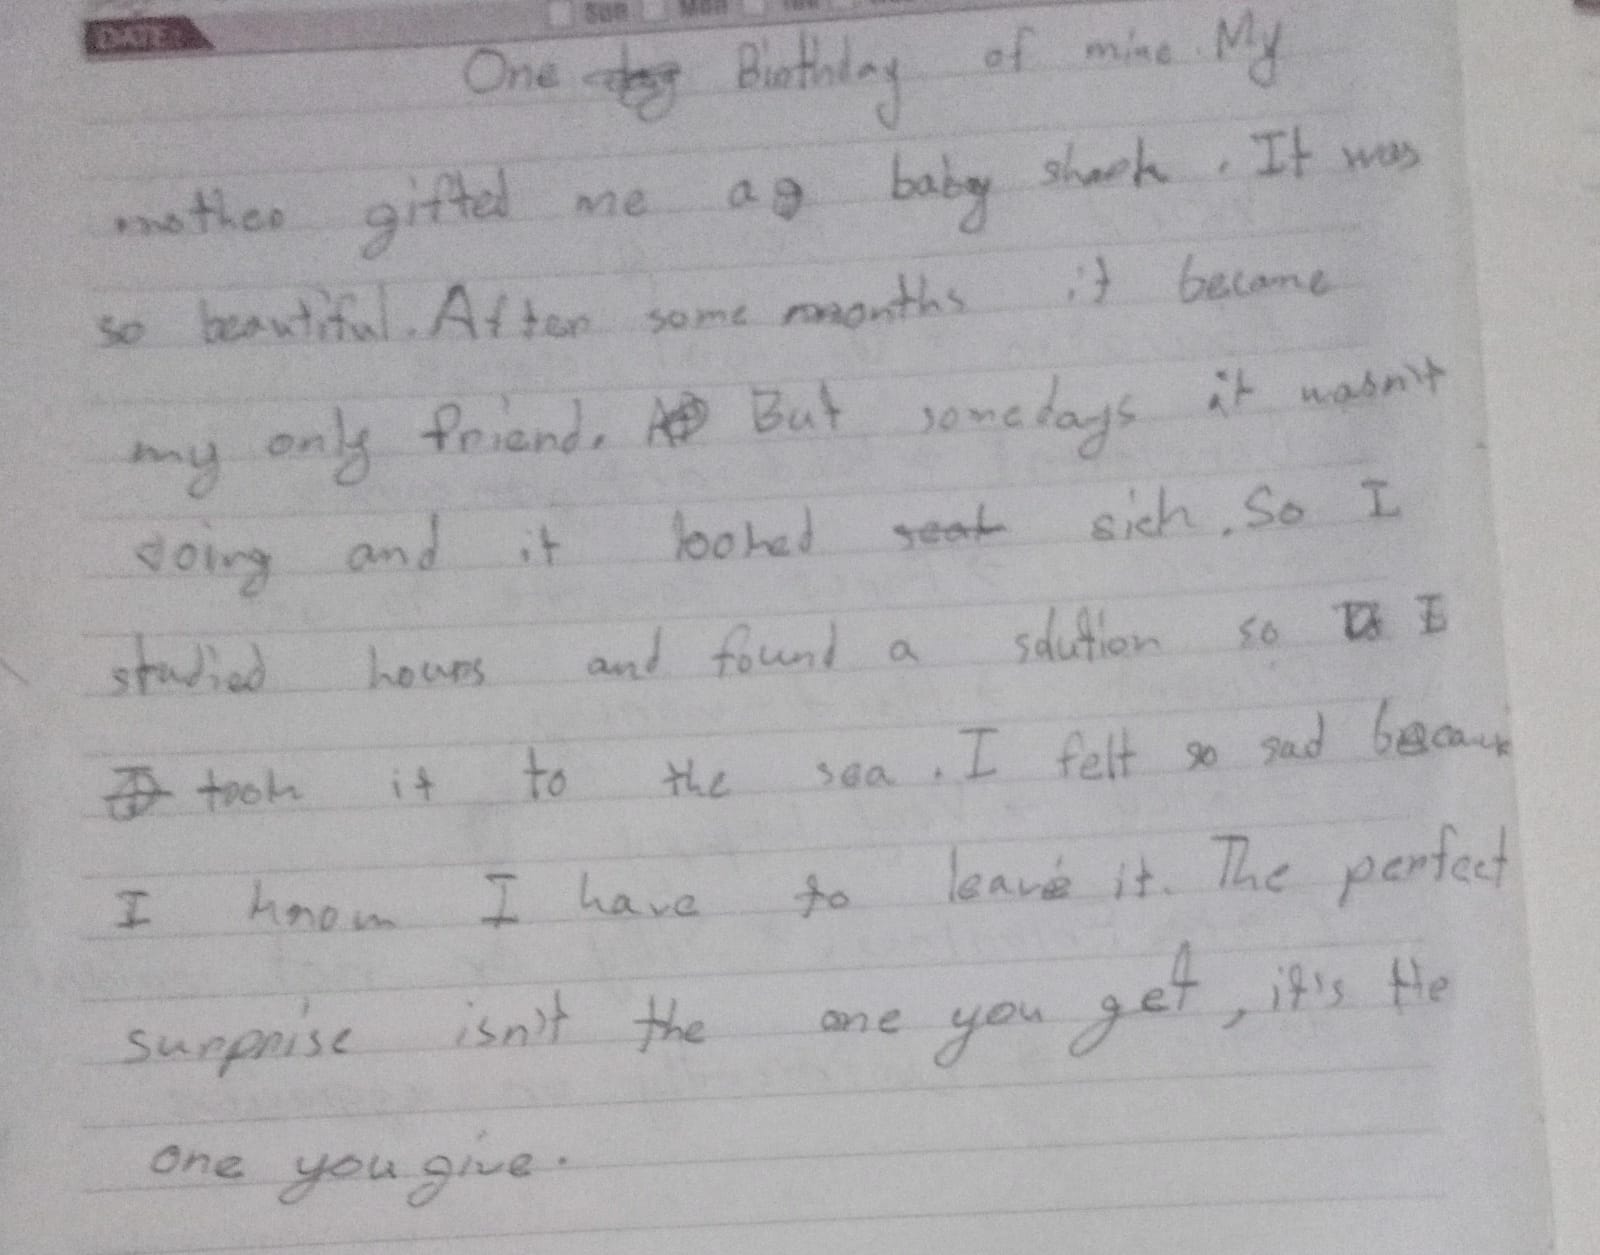 DATE: Sun Mon
One Birthday of mine. My
mother gifted me a baby shark. It was
so beautiful. After some months it became
my only friend. But somedays it wasn't
doing and it looked sick. So I
studied hours and found a solution so I
took it to the sea. I felt so sad because
I know I have to leave it. The perfect
surprise isn't the one you get, it's the
one you give.